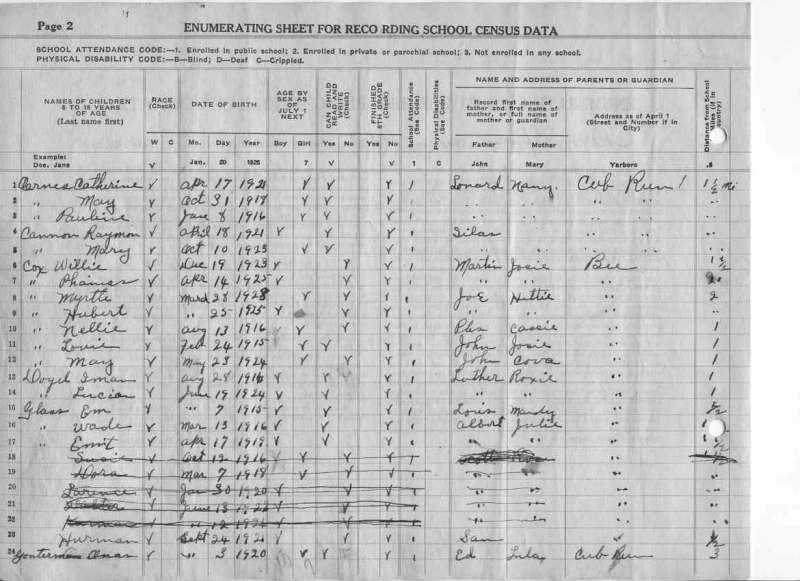 Page 2
ENUMERATING SHEET FOR RECO RDING SCHOOL CENSUS DATA
SCHOOL ATTENDANCE CODE:—1. Enrolled in public school; 2. Enrolled in private or parochial school; 3. Not enrolled in any school.
PHYSICAL DISABILITY CODE:—B—Blind; D—Deaf C—Crippled.
NAMES OF CHILDREN 5 TO 18 YEARS OF AGE (Last name first) RACE (Check) DATE OF BIRTH AGE BY SEX AS OF JULY 1 NEXT CAN CHILD READ AND WRITE (Check) FINISHED 8TH GRADE (Check) School Attendance (See Code) Physical Disabilities (See Code) NAME AND ADDRESS OF PARENTS OR GUARDIAN Distance from School Miles (if in country)
Record first name of father and first name of mother, or full name of mother or guardian Address as of April 1 (Street and Number if in City)
W C Mo. Day Year Boy Girl Yes No Yes No Father Mother
Example:
Doe, Jane V Jan. 20 1925 7 V V 1 John Mary Yarboro .5
1 Catherine V Apr 17 1921 V V V 1 Lonard Nancy Cub Run 1 1/2 Mi
2 " May V Oct 31 1918 V V V 1
3 " Pauline V June 8 1916 V V V 1
4 Cannon Raymon V April 18 1921 V V V 1 Silas
5 " Mary V Oct 10 1923 V V V 1
6 Cox Willie V Dec 19 1923 V V V 1 Martin Josie Bee 1 1/2
7 " V Apr 14 1925 V V V 1 " "
8 " Myrtle V March 28 1928 V V V 1 Joe Hettie " 2
9 " Hubert V " 25 1925 V V V 1 " "
10 " Nellie V Aug 13 1916 V V V 1 Cassie " 1
11 " Louie V Feb 24 1915 V V V 1 John Josie " 1
12 " May V May 23 1924 V V V 1 John Cova " 1
13 Doyel V Aug 28 V V V 1 Luther Roxie " 1
14 " Lucian V June 19 1924 V V V 1 " " " 1
15 Glass Em V " 7 1915 V V V 1 Louis Mandy "
16 " Wade V Mar 13 1916 V V V 1 Albert Julie "
17 " V Apr 17 1919 V V V 1 " " "
18 " Susie V Oct 12 1916 V V V 1
19 " Dora V Mar 7 1918 V V V 1 " " "
20 " V Jan 30 1920 V V V 1 " " "
21 V June 13 1922 V V V 1 " " "
22 V " 12 V V V 1 " " "
23 " Hurman V Sept 24 1921 V V V 1 Sam
24 V " 3 1920 V V V 1 Ed Lula Cub Run 3